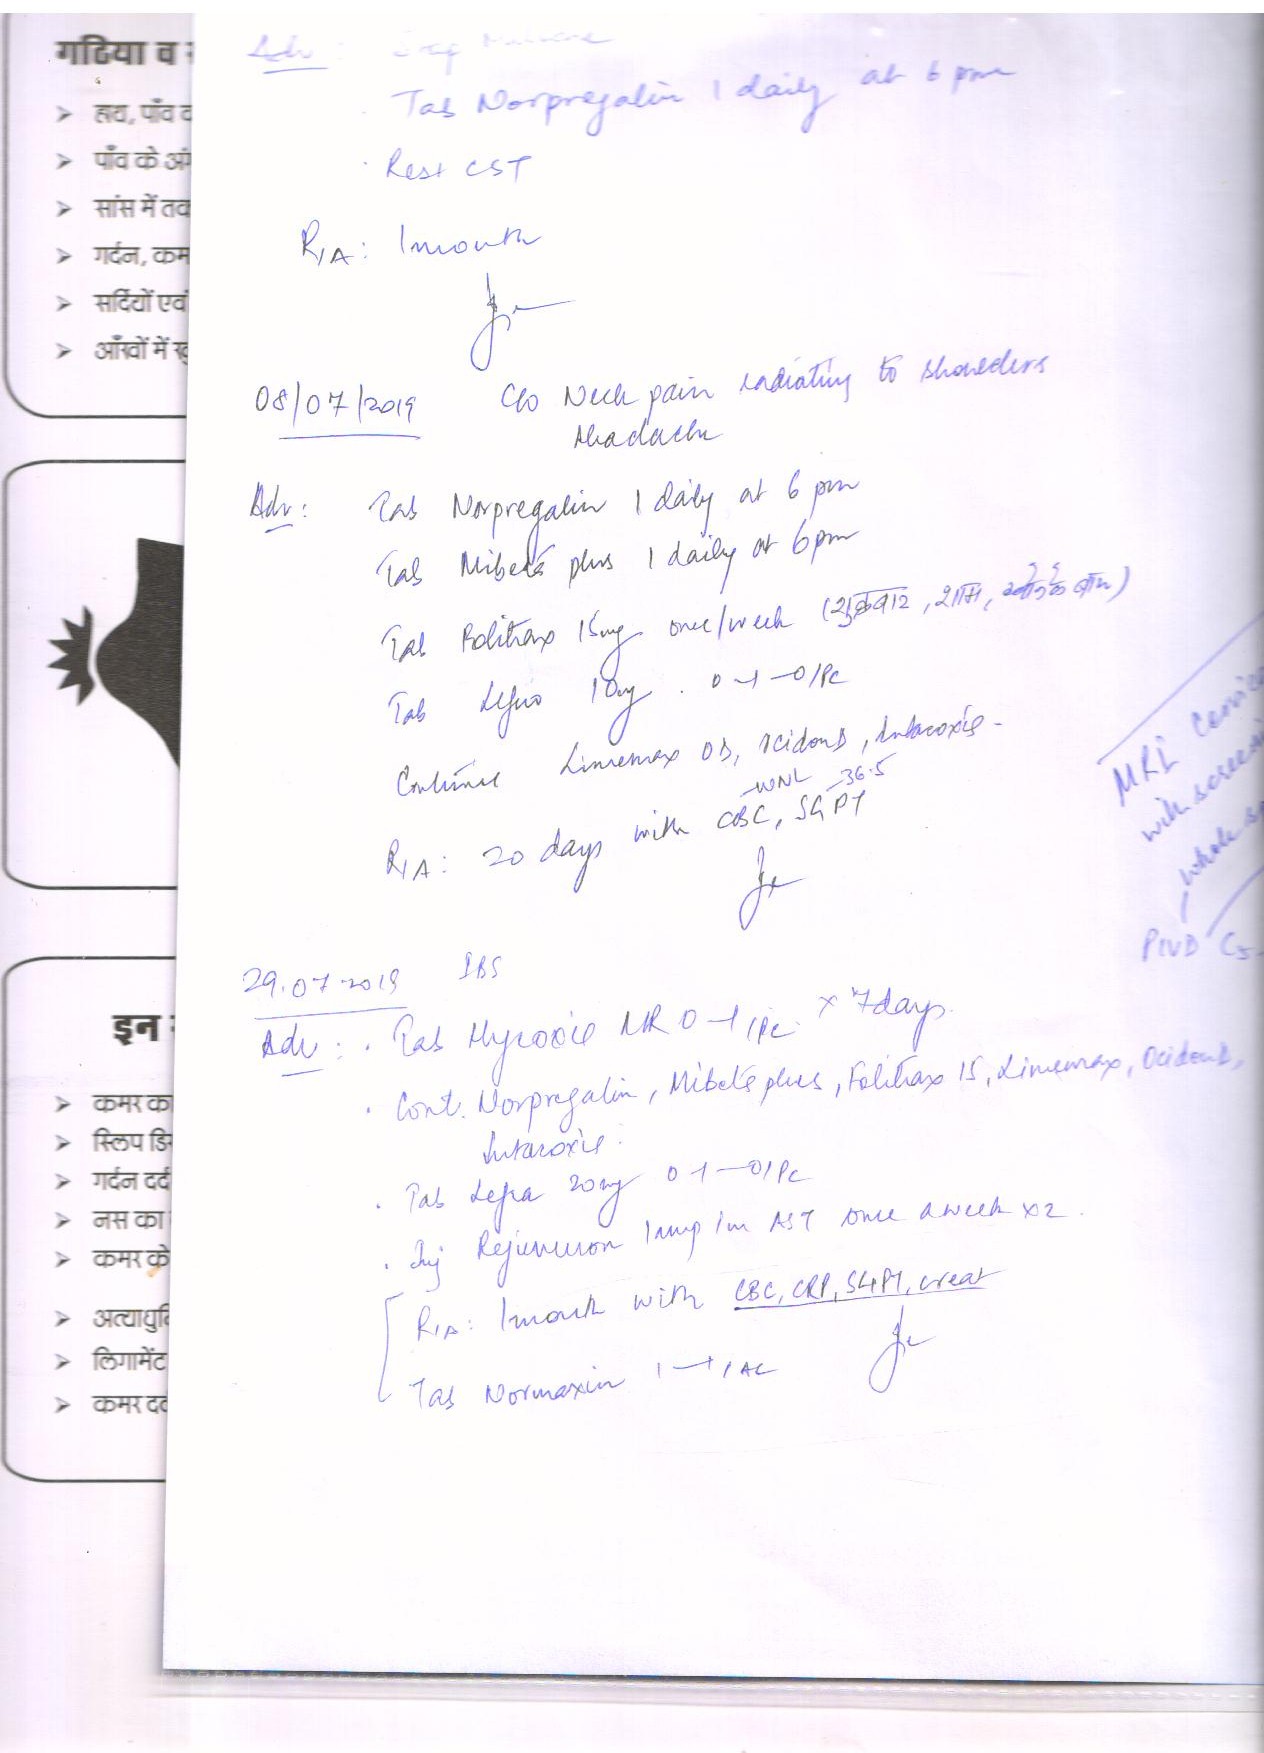 गठिया व
हाथ, पाँव
पाँव के
सांस में
गर्दन, कम
सर्दियों एवं
आँखों में
इन
कमर का
स्लिप
गर्दन दर्द
नस का
कमर को
लिगामेंट
कमर
Adv :
Tab Norpregalin 1 daily at 6 pm
Rest CST
R/A : 1 month
08/07/2019 C/o Neck pain radiating to shoulders
Headache
Adv : Tab Norpregalin 1 daily at 6 pm
Tab Mibeta plus 1 daily at 6 pm
Tab Folitrax 15mg once/week (शुक्रवार, शाम,
Tab Lefra 10mg . 0-1-0/PC
Continue Linemax OD, Ocidon D, Intaroxie -
-WNL -36.5
R/A : 20 days with CBC, SGPT
MRI Cervical
with screening
whole
PIVD C5-
29.07.2019 IBS
Adv : . Tab Myoxie MR 0-1/PC x 7 days.
. Cont. Norpregalin, Mibeta plus, Folitrax 15, Linemax, Ocidon D,
Intaroxie.
. Tab Lefra 20mg 0-1-0/PC
. Inj Rejunuron 1 amp im AST once a week x2.
R/A : 1 month with CBC, CRP, SGPT, creat
Tab Normaxin 1-1/AC